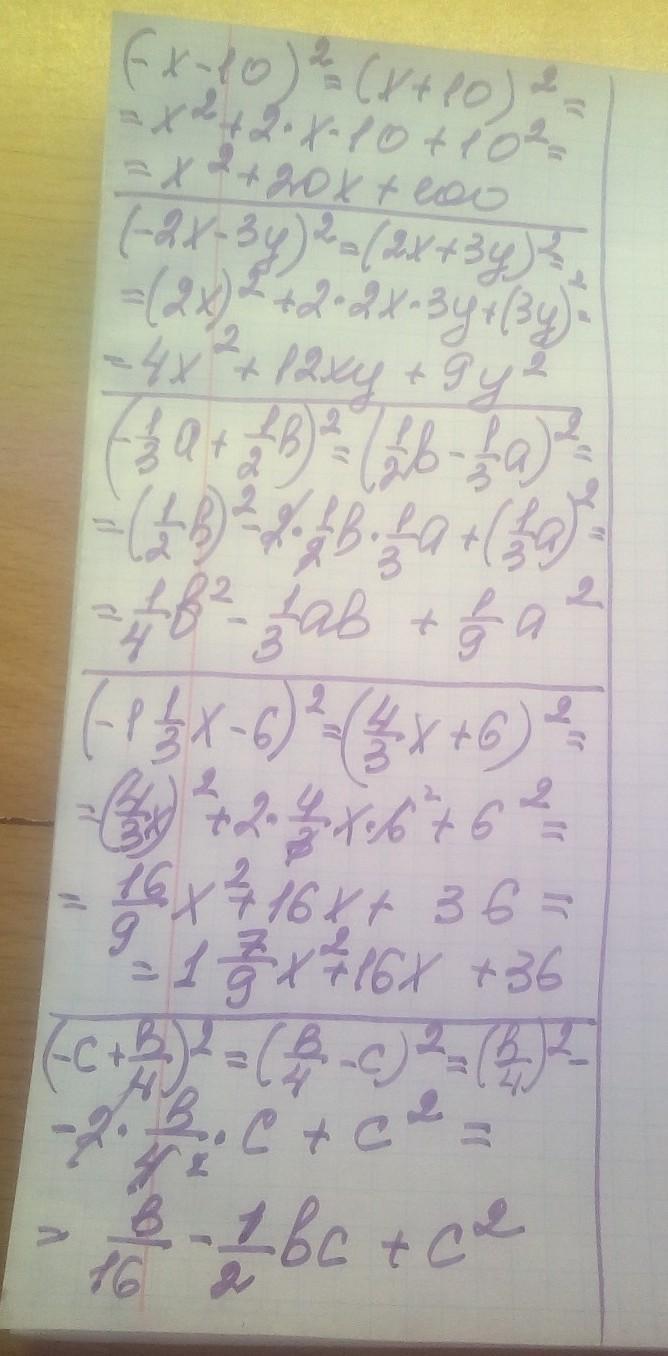 (-x-10)²=(x+10)²=
=x²+2·x·10+10²=
=x²+20x+100
(-2x-3y)²=(2x+3y)²=
=(2x)²+2·2x·3y+(3y)²=
=4x²+12xy+9y²
(-1/3a+1/2b)²=(1/2b-1/3a)²=
=(1/2b)²-2·1/2b·1/3a+(1/3a)²=
=1/4b²-1/3ab+1/9a²
(-1 1/3x-6)²=(4/3x+6)²=
=(4/3x)²+2·4/3x·6²+6²=
=16/9x²+16x+36=
=1 7/9x²+16x+36
(-c+b/4)²=(b/4-c)²=(b/4)²-
-2·b/4 2·c+c²=
=b/16-1/2bc+c²